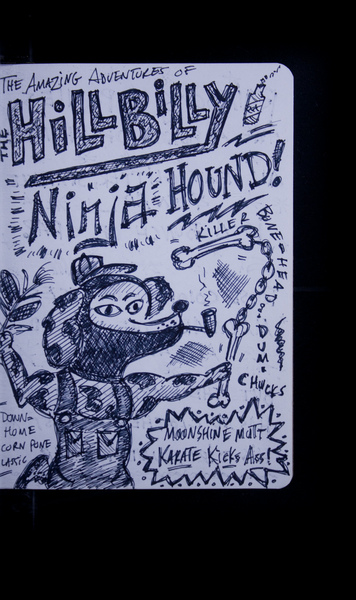 THE AMAZING ADVENTURES OF
THE
HiLLBiLLY
NiNjA HOUND!
KILLER BONE-HEAD
DUM-CHUCKS
DOWN-
HOME
CORN PONE
MOONSHINE MUTT
KARATE KiCKS ASS!